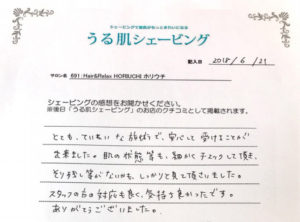 シェービングで素肌がもっときれいになる
うる肌シェービング
記入日 2018/6/21
サロン名 691 :Hair&Relax HORIUCHI ホリウチ
シェービングの感想をお聞かせください。
※後日「うる肌シェービング」のお店のクチコミとして掲載されます。
とても、ていねいな施術で、安心して受けることが
出来ました。肌の状態等も、細かくチェックして頂き、
そり残し等がないかも、しっかりと見て頂さいました。
スタッフの方の対応も良く、気持ち良かったです。
ありがとうございました。